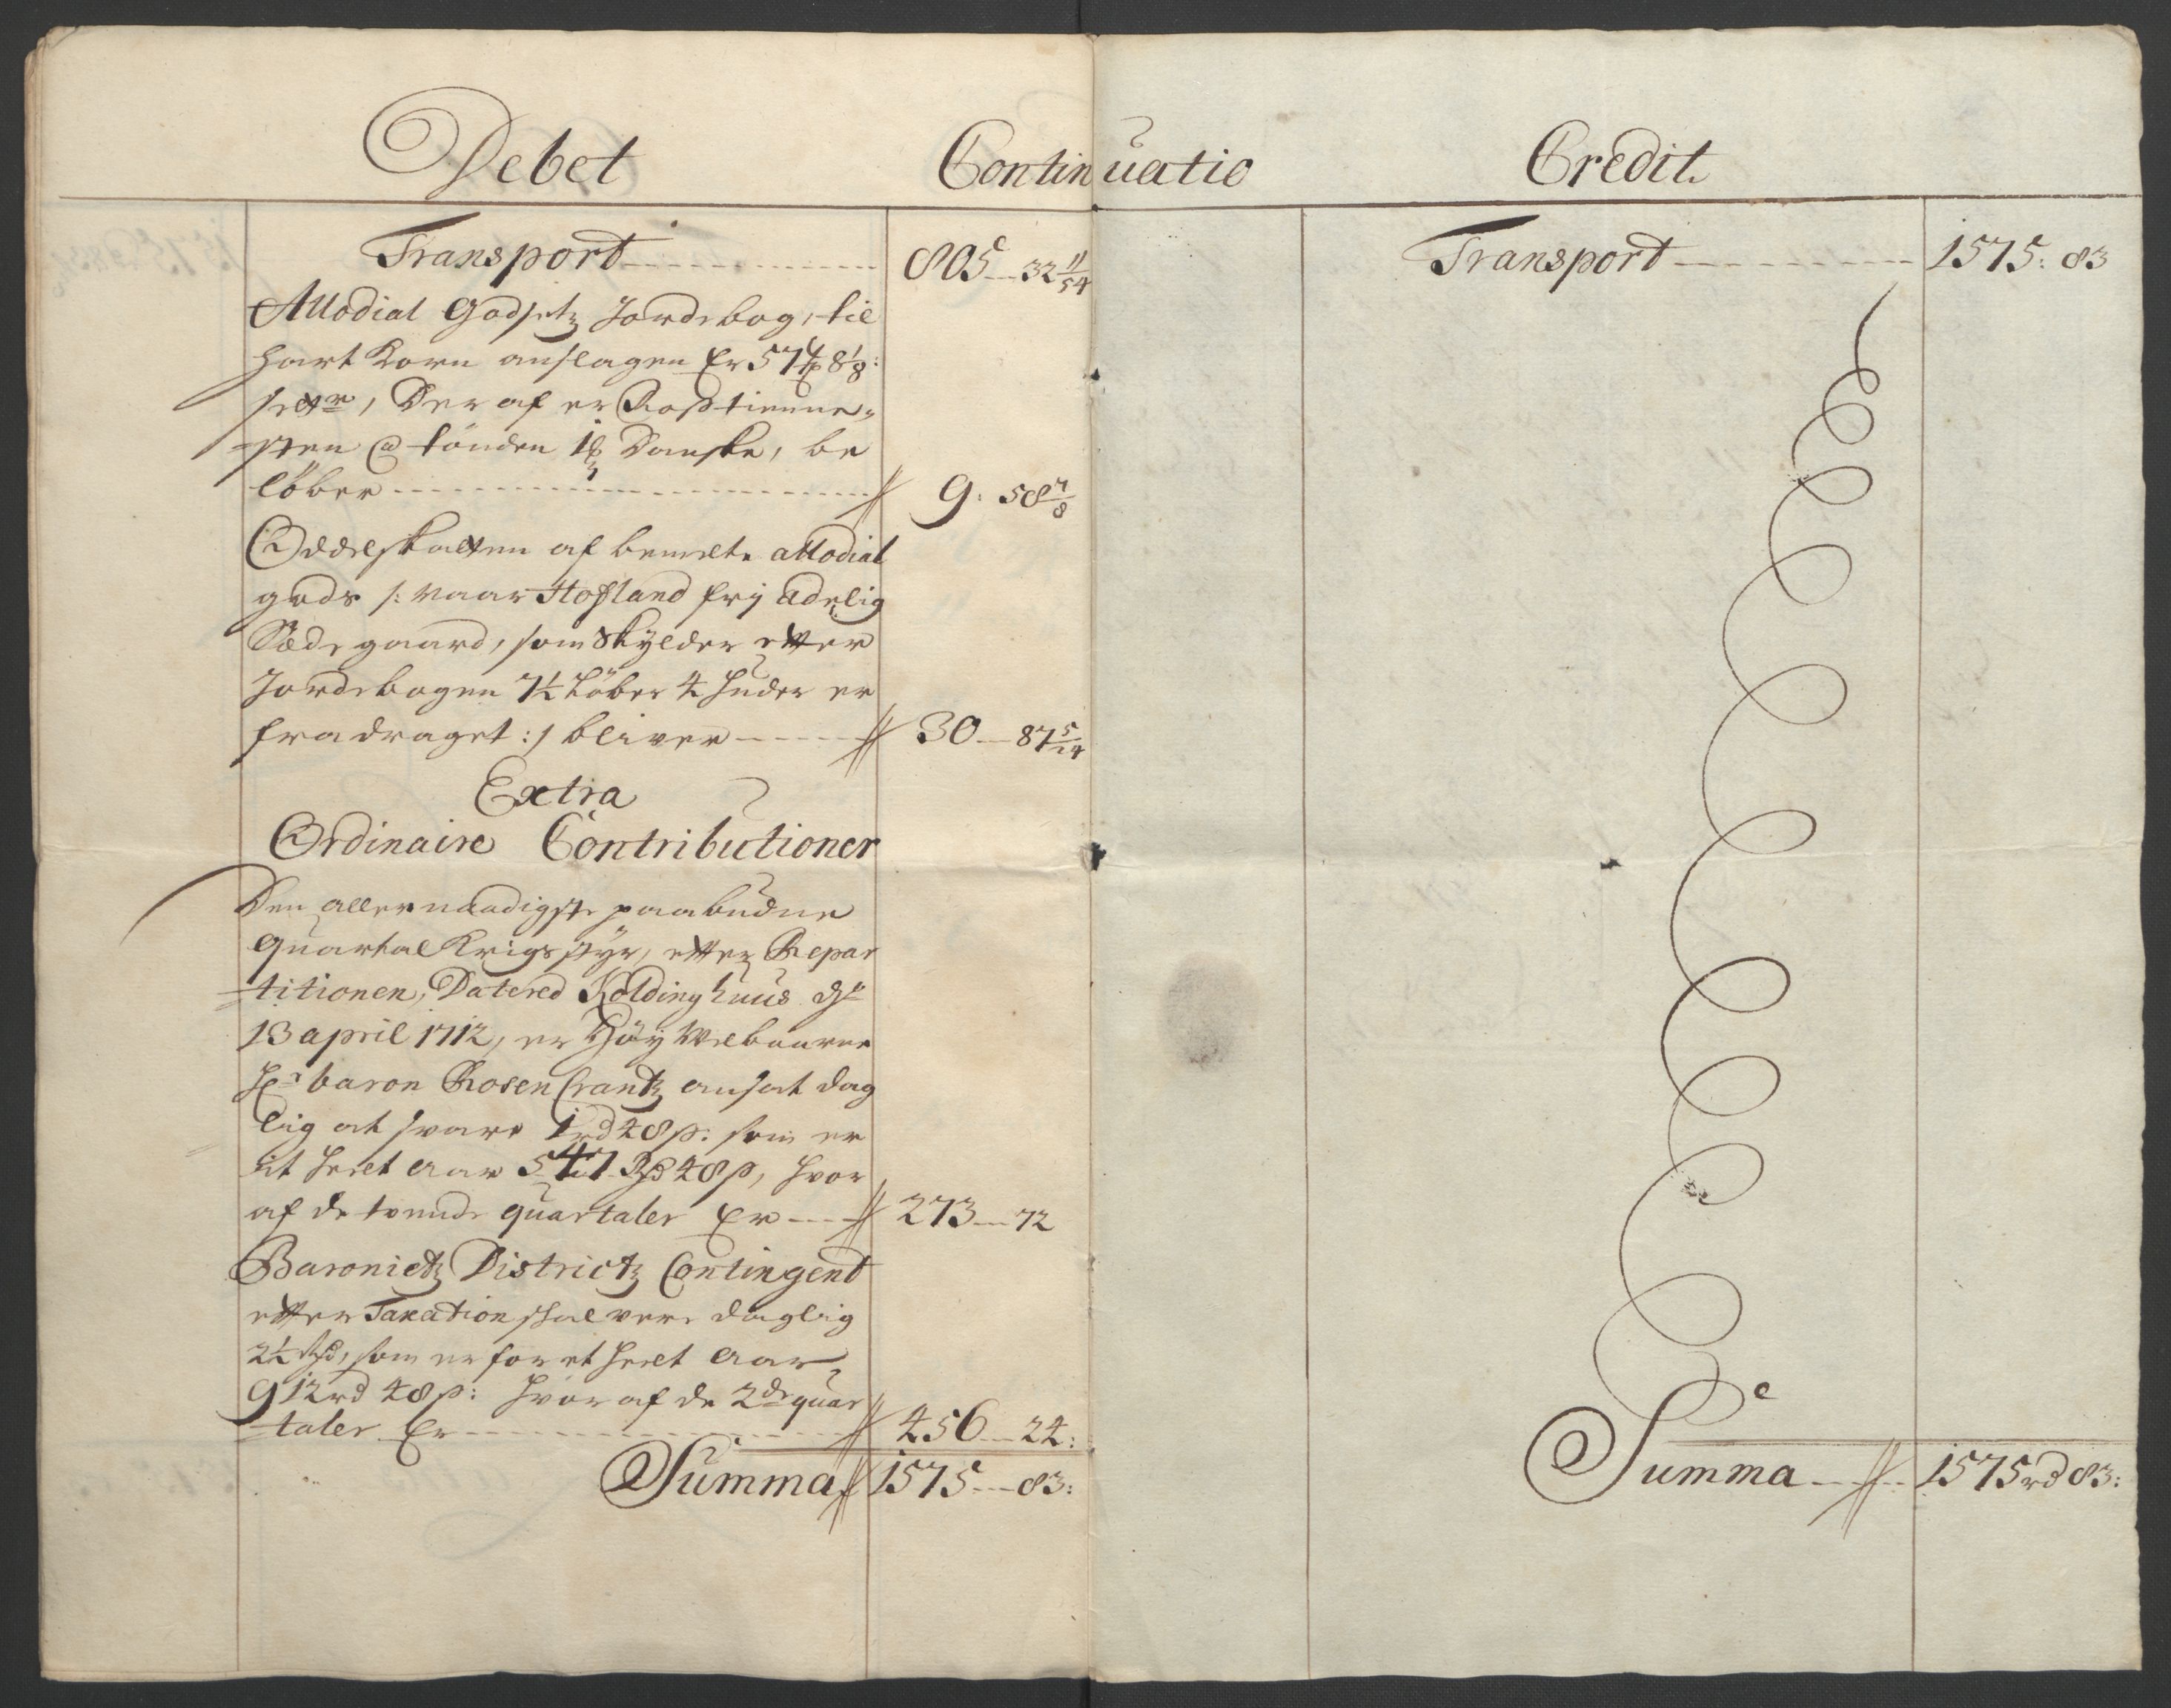 Debet
Continuatio
Credit.
Transport 805 32 11/54
Allodial Godsetz Jordebog, til
hart Korn anslagen Er 574 8 1/8:
settr, Der af er Rosstienne„
sten @ tönden 1 ß Danske, be
löber 9: 58 7/8
Oddelskatten af bemelte allodial
gods /: naar Hofland frij Adelig
Sædegaard, som Skylder etter
Jordebogen 7½ Löber 4 huder er
fradraget :/ bliver 30 87 5/24
Extra
Ordinaire Contributioner
Den allernaadigste paabudne
Quartal Krigsstyr, etter Repar
titionen, Datered Koldinghuus dn
13 april 1712, er Höy Welbaarne
Hr baron RosenCrantz ansat dag
lig at svare 1 rd 48 ß: som er
it heelt Aar 547 Rd 48 ß, hvor
af de tvende quartaler Er 273 72
Baronietz Districtz Contingent
etter Taxation skal vere daglig
2½ Rd, som er for et heelt Aar
912 rd 48 ß: hvor af de 2de quar
taler Er 456 24:
Summa 1575 83:
Transport 1575: 83
Summa 1575 rd 83: